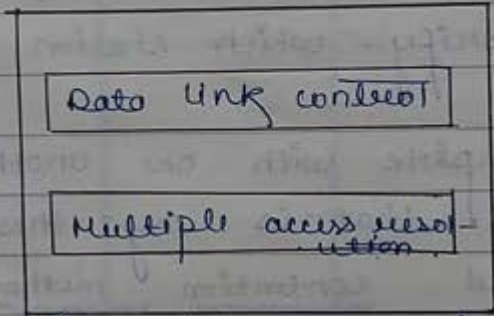 Data Link control
Multiple access resol-
ution.